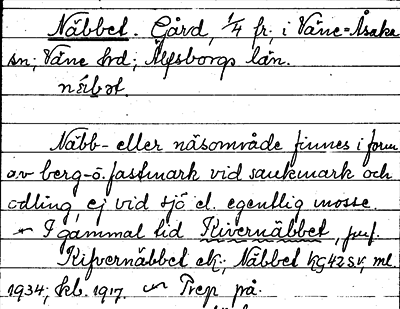 Näbbet. Gård, 1/4 fr; i Väne-Åsaka
sn; Väne hrd; Älfsborgs län.
Näbb- eller näsområde finnes i form
av berg-o. fastmark vid sankmark och
odling, ej vid sjö el. egentlig mosse.
I gammal tid Kivernäbbet, jmf.
Kifvernäbbet ek; Näbbet kg42SV, ml.
1934; kb. 1917. Prep på.